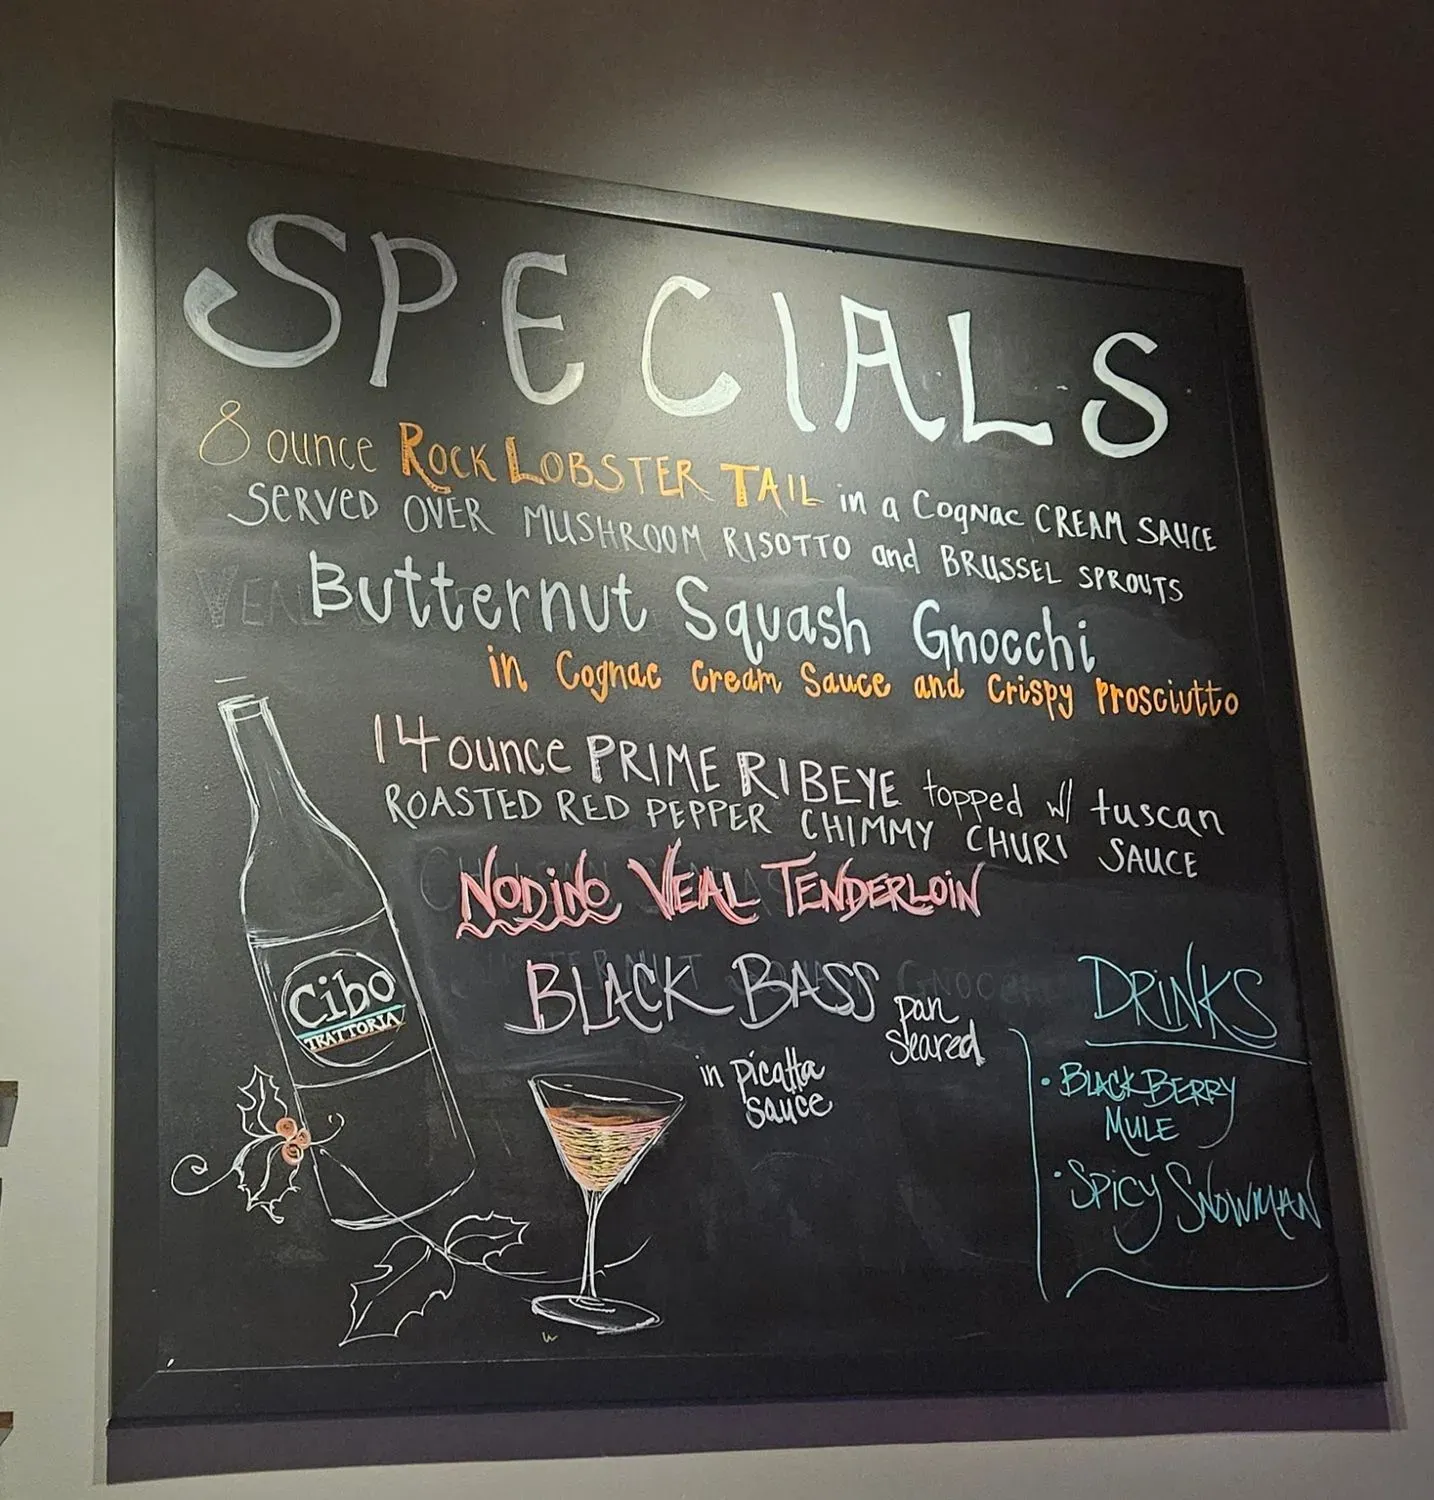 SPECIALS
8 ounce ROCK LOBSTER TAIL in a Cognac CREAM SAUCE
SERVED OVER MUSHROOM RISOTTO and BRUSSEL SPROUTS
Butternut Squash Gnocchi
in Cognac Cream Sauce and Crispy Prosciutto
14 ounce PRIME RIBEYE topped w/ tuscan
ROASTED RED PEPPER CHIMMY CHURI SAUCE
VEAL TENDERLOIN
BLACK BASS pan
seared
in picatta
sauce
Cibo
TRATTORIA
DRINKS
• BLACKBERRY
MULE
• SPICY SNOWMAN